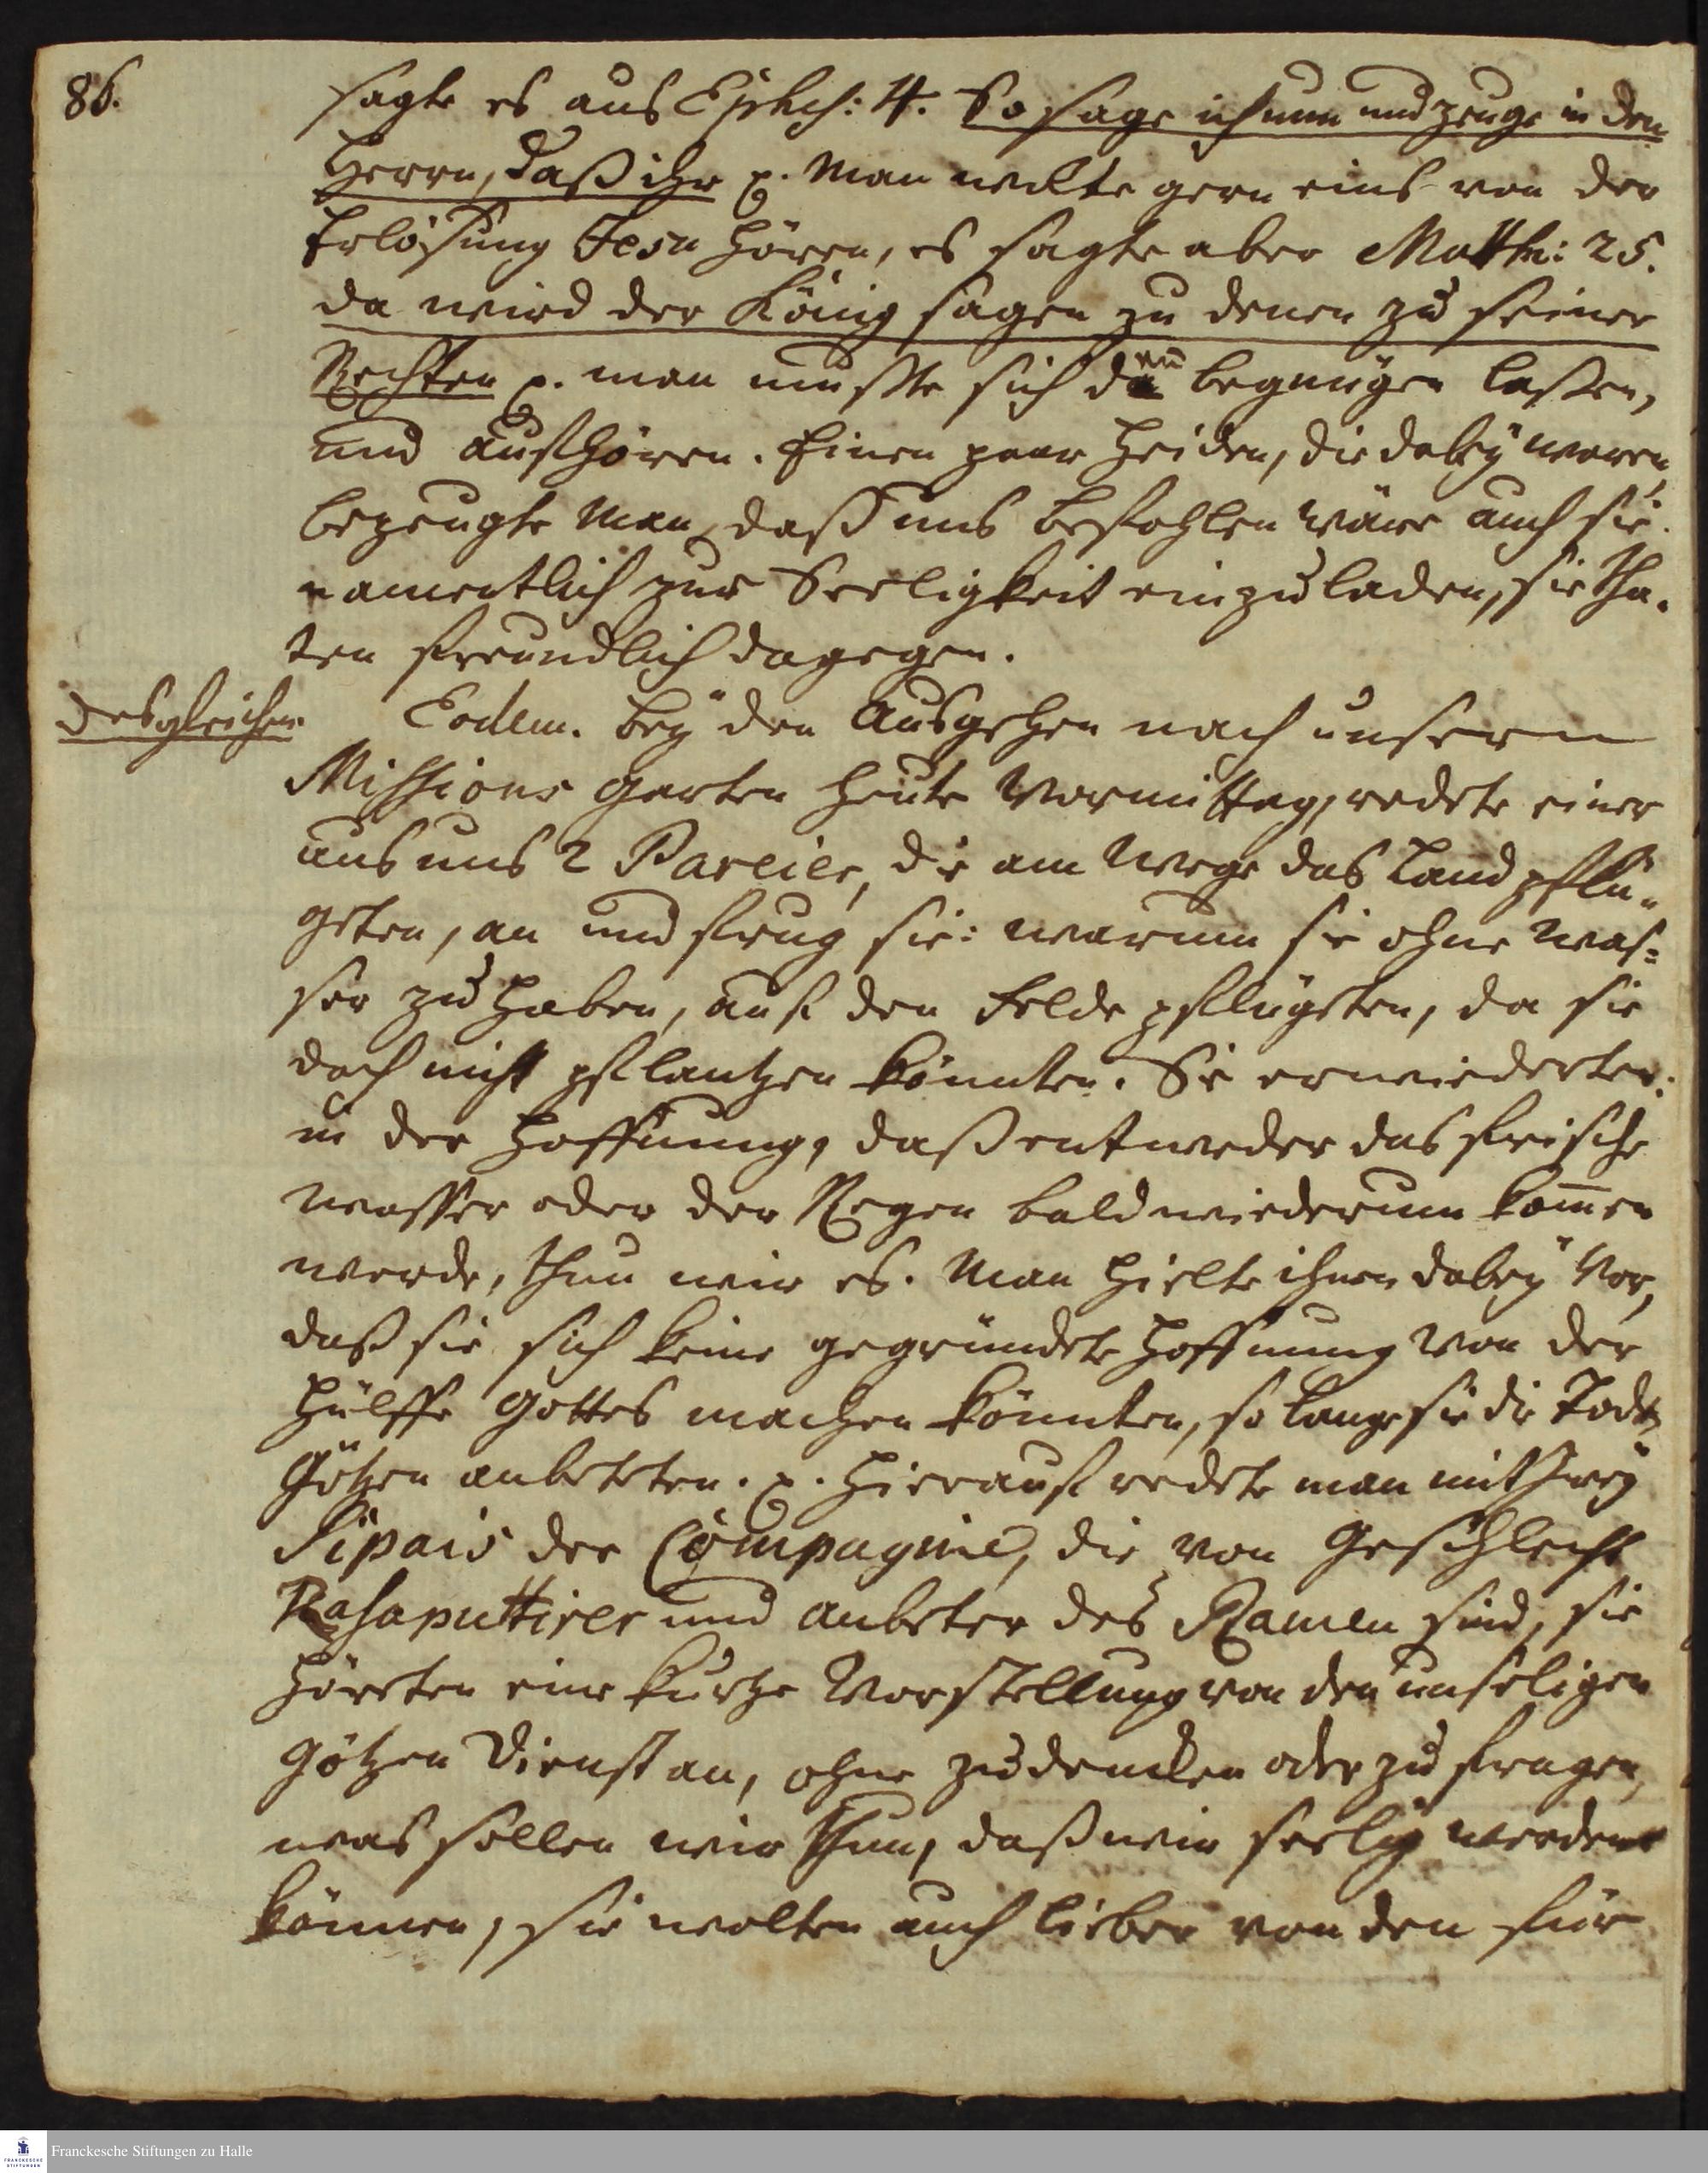 86.
sagte es aus Ephes: 4. So sage ich nun und zeuge in den
Herrn, daß ihr p. Man wolte gern eins von der
Erlösung Jesu hören, es sagte aber Matth: 25.
da wird der König sagen zu denen zu seiner
Rechten p. man mußte sich dann begnügen laßen,
und aufhören. Einen paar Heiden, die dabeÿ waren,
bezeugte Man, daß uns befohlen wäre auch sie
namentlich zur Seeligkeit einzuladen, sie tha-
ten freundlich dagegen.
desgleichen
Eodem. beÿ den Ausgehen nach unsern
Missions Garten heute Vormittag, redete einer
aus uns 2 Pareier, die am Wege das Land pflü-
geten, an und frug sie: warum sie ohne Was=
ser zu haben, auf den Felde pflügten, da sie
doch nicht pflantzen könnten. Sie erwiederten:
in der Hoffnung, daß entweder das frische
Wasser oder der Regen bald wiederum kom̄en
werde, thun wir es. Man hielte ihnen dabeÿ vor,
daß sie sich keine gegründete Hoffnung von der
Hülffe Gottes machen könnten, so lange sie die Todte
Götzen anbeteten. p. Hierauf redete man mit zweÿ
Sipais der Compagnie, die von Geschlecht
Rasaputtirer und Anbeter des Ramen sind, sie
höreten eine kurtze Vorstellung von den unseligen
Götzen Dienst an, ohne zu dencken oder zu fragen,
was sollen wir thun, daß wir seelig werden
können, sie wolten auch lieber von den für
Franckesche Stiftungen zu Halle
FRANCKESCHE
STIFTUNGEN